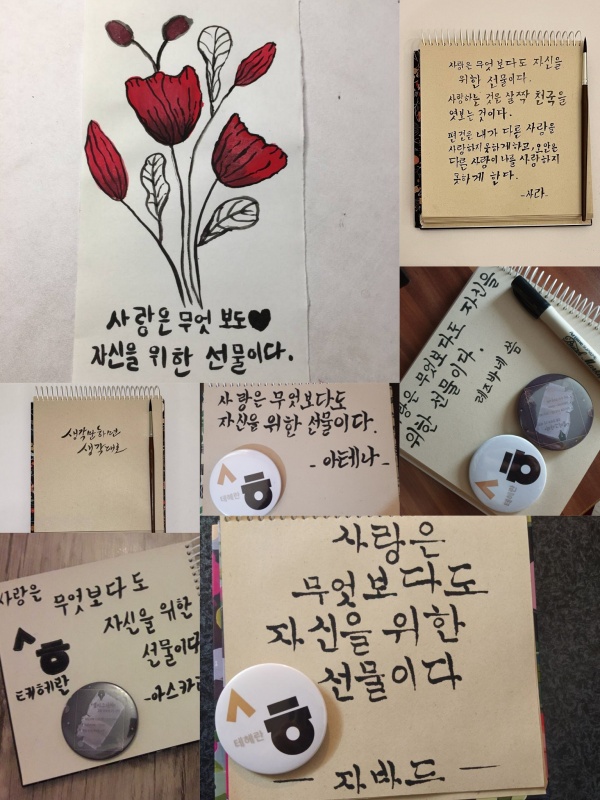 사랑은 무엇 보도♥
자신을 위한 선물이다.
사랑은 무엇보다도 자신을
위한 선물이다.
사랑하는 것은 살짝 천국을
엿보는 것이다.
편견은 내가 다른 사람을
사랑하지 못하게 하고, 오만은
다른 사람이 나를 사랑하지
못하게 한다.
-사라-
랑은 무엇보다도 자신을
위한 선물이다.
레조바네 씀
테헤란
생각만하면
생각대로
사랑은 무엇보다도
자신을 위한 선물이다.
- 아테나 -
테헤란
사랑은 무엇보다도
자신을 위한
선물이다
테헤란
-아스카
사랑은
무엇보다도
자신을 위한
선물이다
테헤란
— 자바드 —